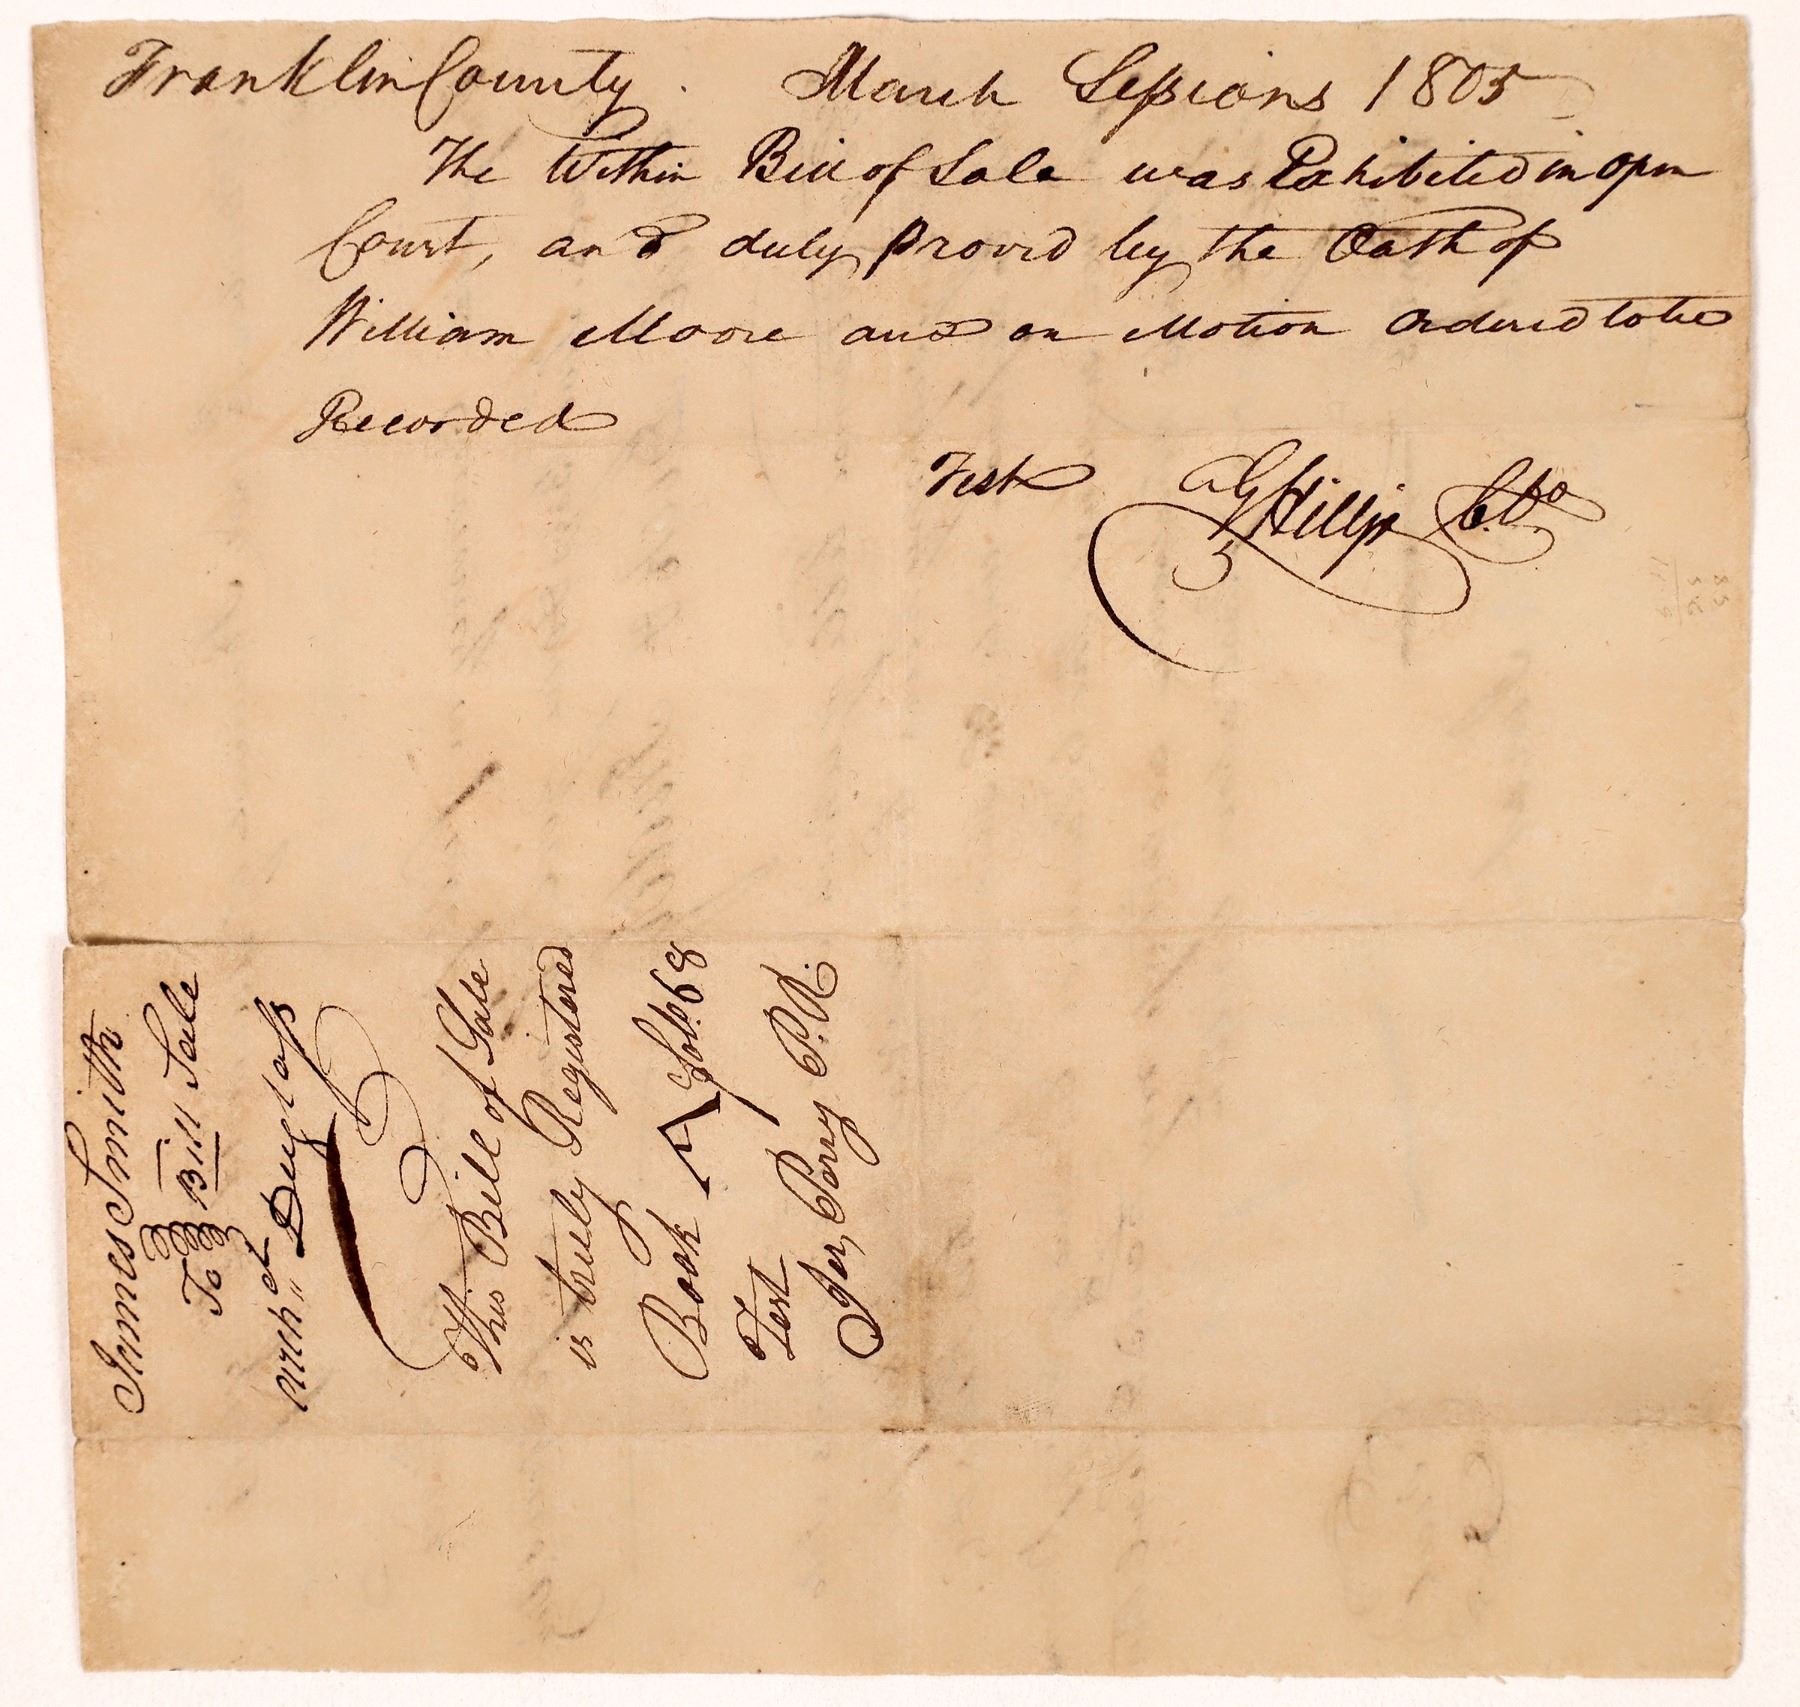 Franklin County. March Sessions 1805
The Within Bill of Sale was Exhibited in open
Court, and duly proved by the Oath of
William Moore and on Motion Ordered to be
Recorded
Test G Hill
James Smith
To Bill Sale
Duglass
This Bill of Sale
is truly Registered
Book 7 fol. 68
Test
Jer, Perry P.R.